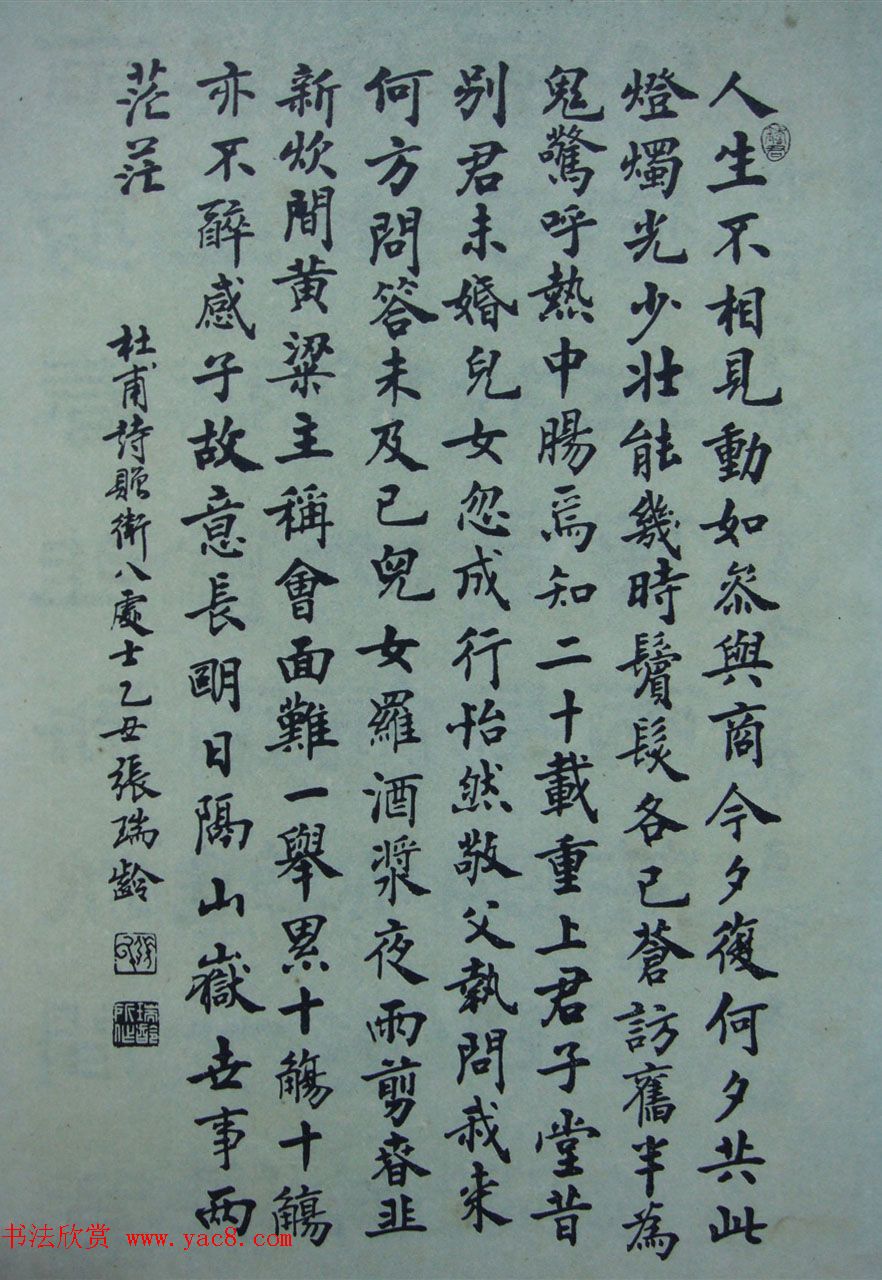 人生不相見動如參與商今夕復何夕共此
燈燭光少壯能幾時鬢髮各已蒼訪舊半為
鬼驚呼熱中腸焉知二十載重上君子堂昔
别君未婚兒女忽成行怡然敬父執問我來
何方問答未及已兒女羅酒漿夜雨剪春韭
新炊間黄粱主稱會面難一舉累十觴十觴
亦不醉感子故意長明日隔山嶽世事兩
茫茫
杜甫詩贈衛八處士乙丑張瑞齡
瑞齡所作
书法欣赏 www.yac8.com